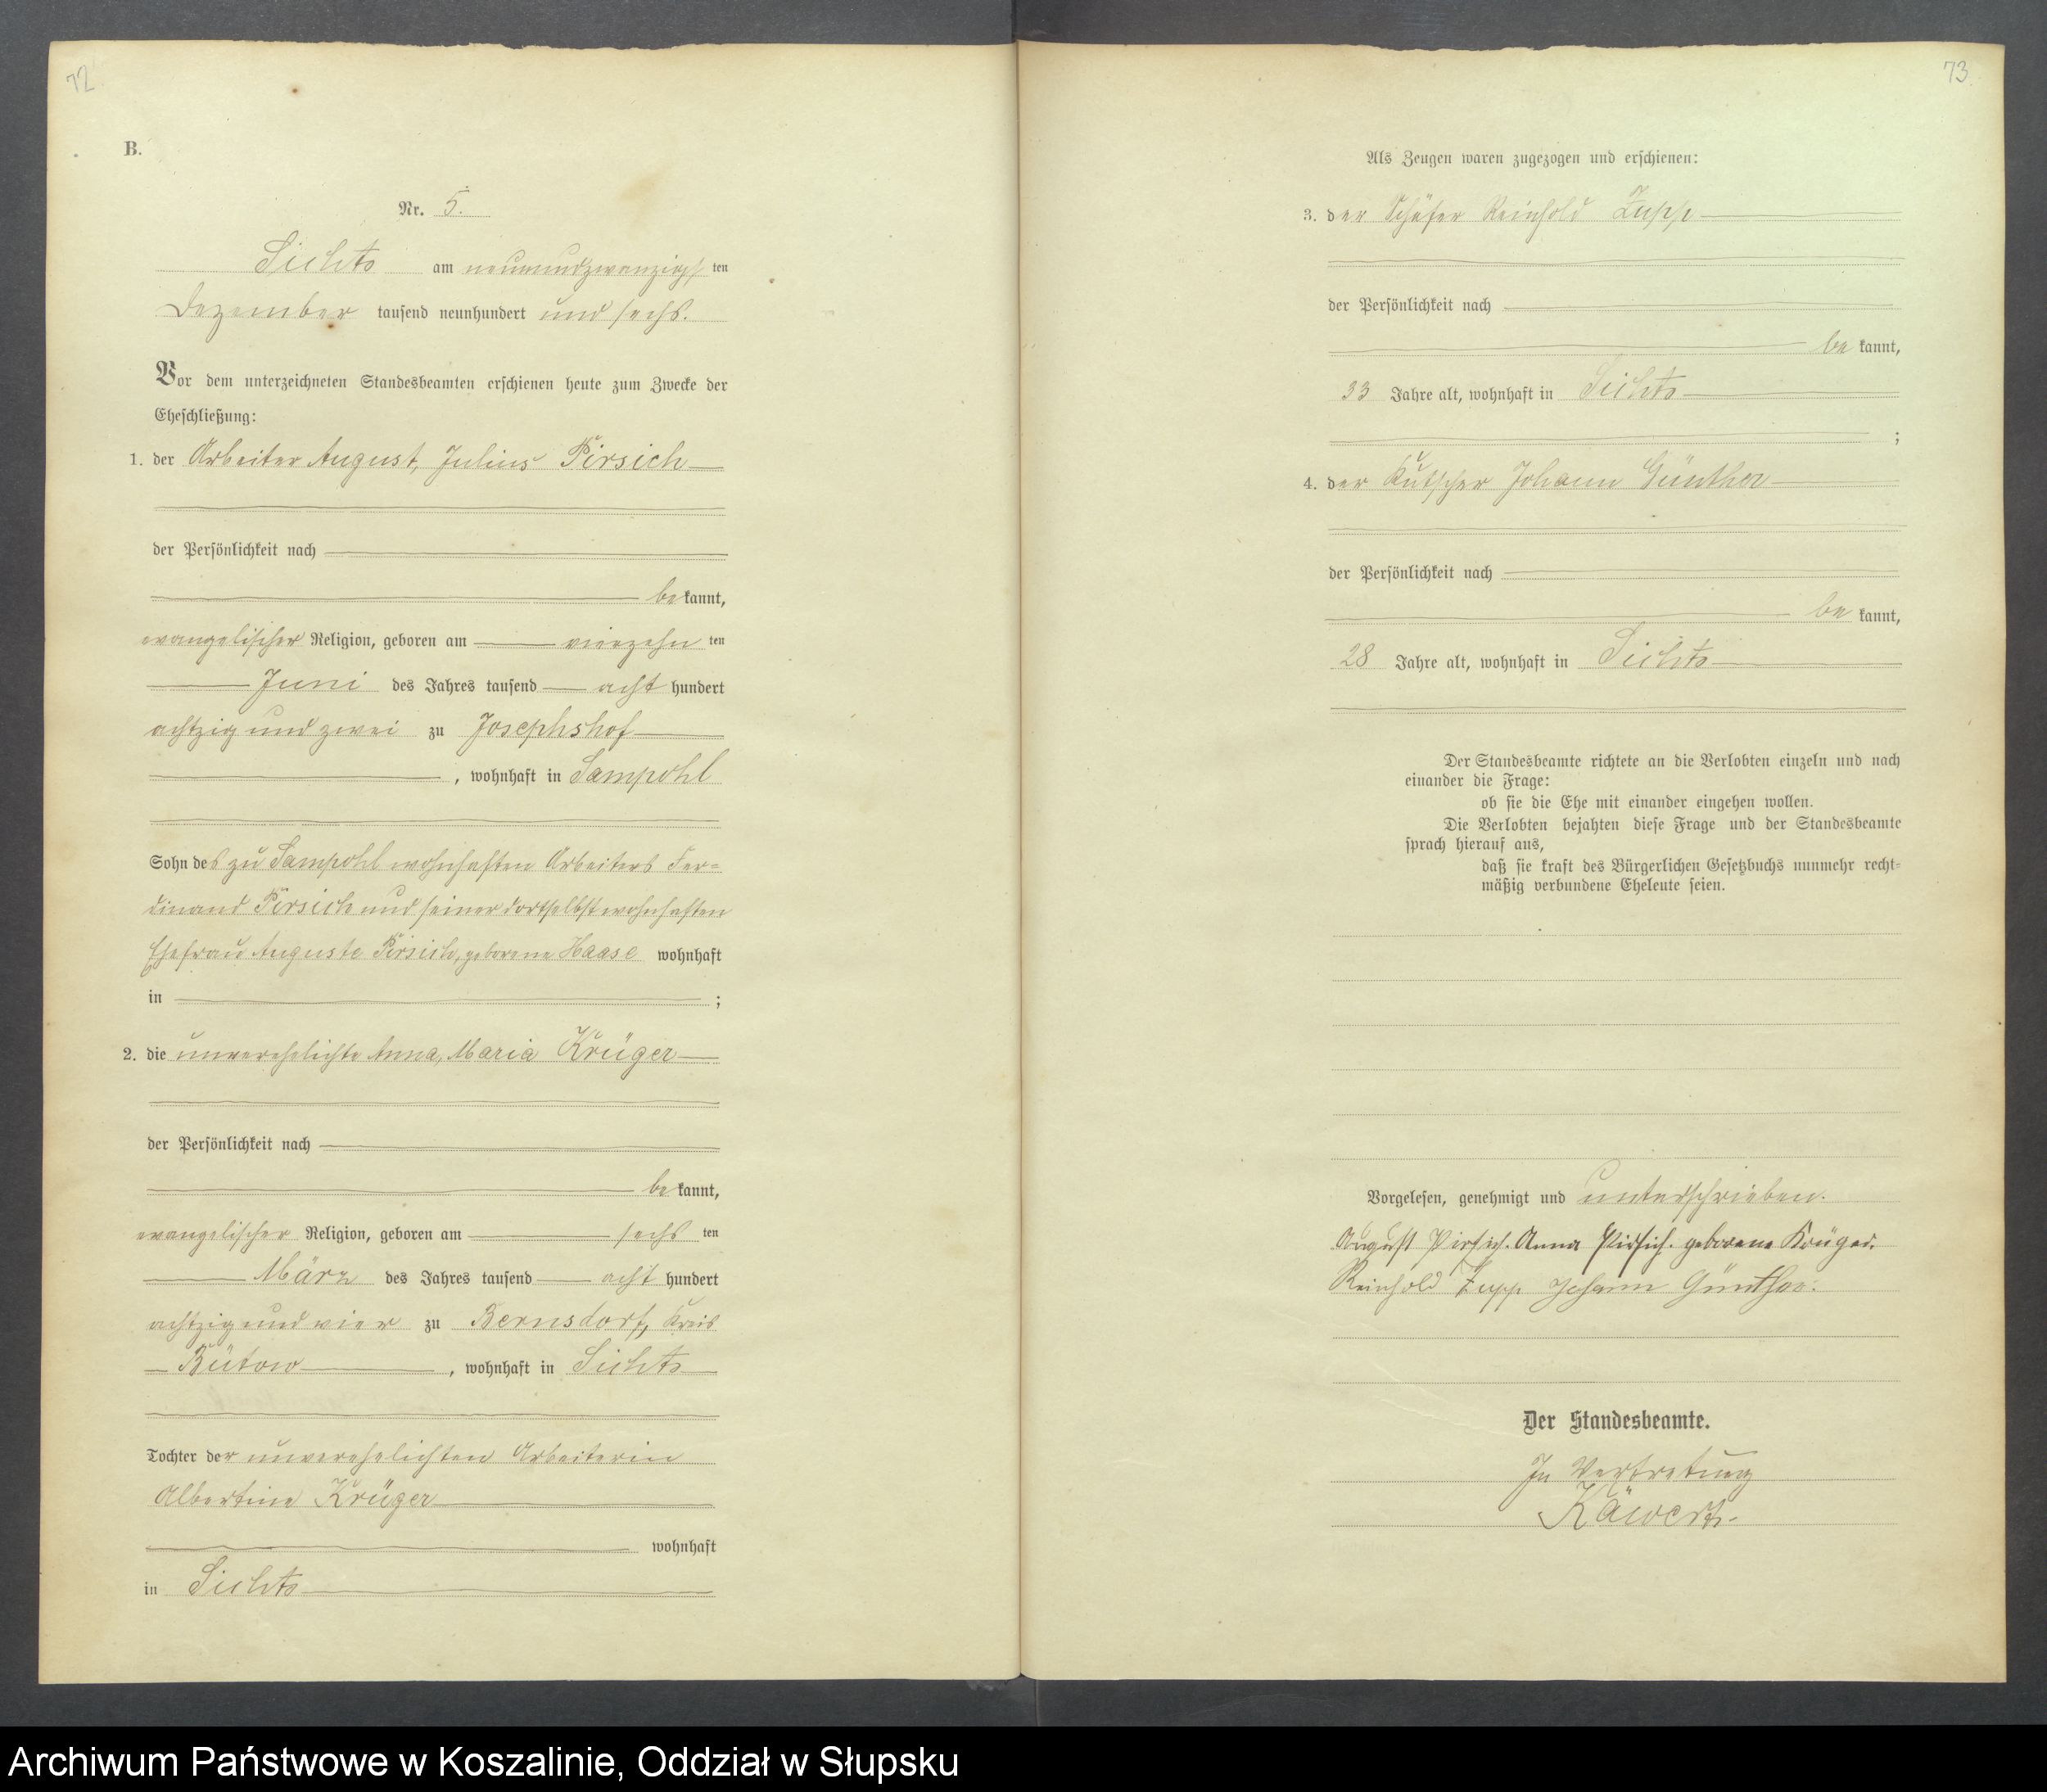 72
B.
Nr. 5.
Sichts am neunundzwanzigsten
Dezember tausend neunhundert und sechs.
Vor dem unterzeichneten Standesbeamten erschienen heute zum Zwecke der
Eheschließung:
1. der Arbeiter August, Julius Pirsich
der Persönlichkeit nach
bekannt,
evangelischer Religion, geboren am vierzehn ten
Juni des Jahres tausend acht hundert
achtzig und zwei zu Josephshof
, wohnhaft in Sampohl
Sohn des zu Sampohl wohnhaften Arbeiters Fer=
dinand Pirsich und seiner dortselbst wohnhaften
Ehefrau Auguste Pirsich, geborene Haase wohnhaft
in ;
2. die unverehelichte Anna, Maria Krüger
der Persönlichkeit nach
bekannt,
evangelischer Religion, geboren am sechs ten
März des Jahres tausend acht hundert
achtzig und vier zu Bernsdorf, Kreis
Bütow , wohnhaft in Sichts
Tochter der unverehelichten Arbeiterin
Albertine Krüger
wohnhaft
in Sichts
73
Als Zeugen waren zugezogen und erschienen:
3. der Schäfer Reinhold Zupp
der Persönlichkeit nach
be kannt,
33 Jahre alt, wohnhaft in Sichts
;
4. der Kutscher Johann Günther
der Persönlichkeit nach
be kannt,
28 Jahre alt, wohnhaft in Sichts
Der Standesbeamte richtete an die Verlobten einzeln und nach
einander die Frage:
ob sie die Ehe mit einander eingehen wollen.
Die Verlobten bejahten diese Frage und der Standesbeamte
sprach hierauf aus,
daß sie kraft des Bürgerlichen Gesetzbuchs nunmehr recht=
mäßig verbundene Eheleute seien.
Vorgelesen, genehmigt und unterschrieben.
August Pirsich. Anna Pirsich. geborene Krüger.
Reinhold Zupp Johann Günther.
Der Standesbeamte.
In Vertretung
Archiwum Państwowe w Koszalinie, Oddział w Słupsku